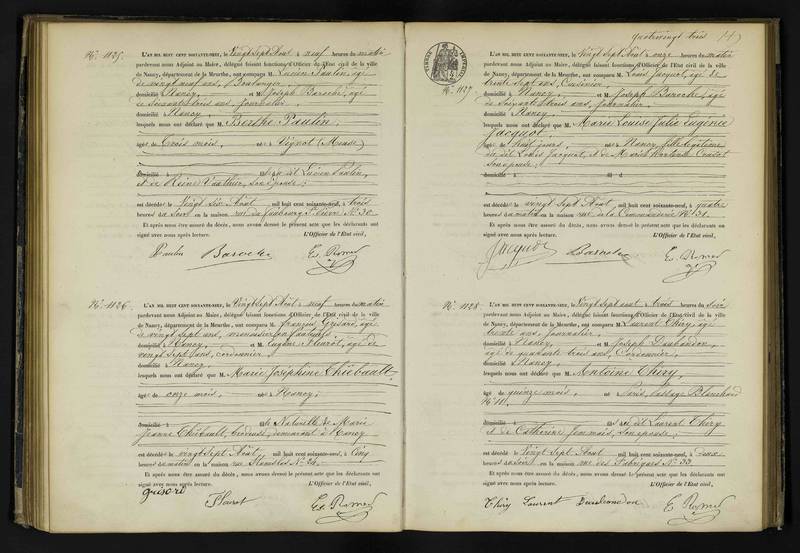 No. 1125.
L'AN MIL HUIT CENT SOIXANTE-NEUF, le Vingt Sept Août à neuf heures du matin
pardevant nous Adjoint au Maire, délégué faisant fonctions d'Officier de l'État civil de la ville
de Nancy, département de la Meurthe, ont comparu M. Lucien Paulin, âgé
de vingt neuf ans, Boulanger
domicilié à Nancy, et M. Joseph Baroche, âgé
de soixante trois ans, journalier,
domicilié à Nancy,
lesquels nous ont déclaré que M. Berthe Paulin,
âgé de trois mois, né à Vignot (Meuse)
domicilié à fille du dit Lucien Paulin,
et de Reine Vauthier, son épouse;
est décédé le Vingt Six Août mil huit cent soixante-neuf, à trois
heures du soir en la maison rue du faubourg St. Pierre No. 30
Et après nous être assuré du décès, nous avons dressé le présent acte que les déclarants ont
signé avec nous après lecture. L'Officier de l'État civil,
Paulin Baroche
No. 1126.
L'AN MIL HUIT CENT SOIXANTE-NEUF, le Vingt Sept Août à neuf heures du matin
pardevant nous Adjoint au Maire, délégué faisant fonctions d'Officier de l'État civil de la ville
de Nancy, département de la Meurthe, ont comparu M. françois Grisard, âgé
de vingt sept ans, menuisier en fauteuils
domicilié à Nancy, et M. Eugène Fleurot, âgé de
vingt sept ans, cordonnier
domicilié à Nancy,
lesquels nous ont déclaré que M. Marie Joséphine Thiébault,
âgé de onze mois, né à Nancy,
domicilié à fille Naturelle de Marie
Jeanne Thiébault, brodeuse, demeurant à Nancy
est décédé le vingt sept Août mil huit cent soixante-neuf, à Cinq
heures du matin en la maison rue Stanislas No. 24.
Et après nous être assuré du décès, nous avons dressé le présent acte que les déclarants ont
signé avec nous après lecture. L'Officier de l'État civil,
No. 1127
L'AN MIL HUIT CENT SOIXANTE-NEUF, le Vingt Sept Août à onze heures du matin
pardevant nous Adjoint au Maire, délégué faisant fonctions d'Officier de l'État civil de la ville
de Nancy, département de la Meurthe, ont comparu M. Louis Jacquot, âgé de
trente sept ans,
domicilié à Nancy, et M. Joseph Baroche, âgé
de soixante trois ans, journalier,
domicilié à Nancy,
lesquels nous ont déclaré que M. Marie Louise Julie Eugénie
Jacquot,
âgé de huit jours, né à Nancy, fille légitime
du dit Louis Jacquot, et de Marie
son épouse;
domicilié à
est décédé le vingt Sept Août mil huit cent soixante-neuf, à quatre
heures du matin en la maison rue de la Commanderie No. 31.
Et après nous être assuré du décès, nous avons dressé le présent acte que les déclarants ont
signé avec nous après lecture. L'Officier de l'État civil,
Jacquot Baroche
No. 1128
L'AN MIL HUIT CENT SOIXANTE-NEUF, le Vingt Sept août à trois heures du soir
pardevant nous Adjoint au Maire, délégué faisant fonctions d'Officier de l'État civil de la ville
de Nancy, département de la Meurthe, ont comparu M. Laurent Thiry, âgé
de trente ans, journalier,
domicilié à Nancy, et M. Joseph
âgé de quarante trois ans, Cordonnier,
domicilié à Nancy,
lesquels nous ont déclaré que M. Antoine Thiry,
âgé de quinze mois, né à Paris, passage Blanchard
No. 11.
domicilié à fils du dit Laurent Thiry
et de Catherine son épouse;
est décédé le Vingt Sept Août mil huit cent soixante-neuf, à deux
heures du soir en la maison rue des Fabriques No. 33.
Et après nous être assuré du décès, nous avons dressé le présent acte que les déclarants ont
signé avec nous après lecture. L'Officier de l'État civil,
Thiry Laurent